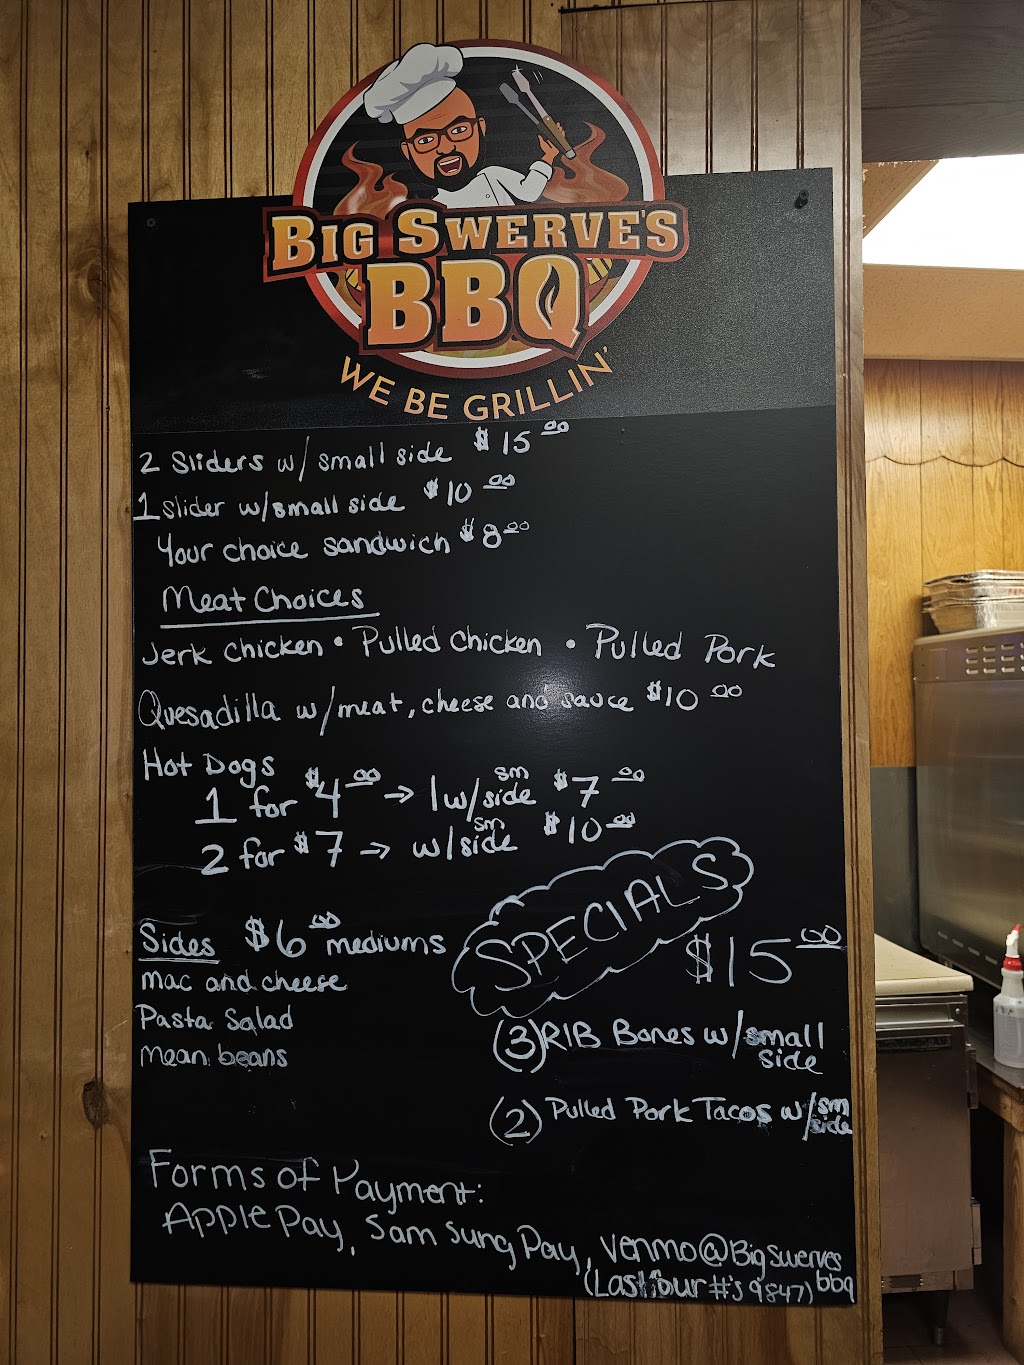 BIG SWERVE'S
BBQ
WE BE GRILLIN'
2 Sliders w/ small side $15.00
1 slider w/small side $10.00
Your choice sandwich $8.00
Meat Choices
Jerk chicken • Pulled chicken • Pulled Pork
Quesadilla w/meat, cheese and sauce $10.00
Hot Dogs
1 for $4.00 → 1 w/sm side $7.00
2 for $7 → w/sm side $10.00
SPECIALS
Sides $6.00 mediums
$15.00
mac and cheese
Pasta Salad
mean beans
(3) RIB Bones w/small side
(2) Pulled Pork Tacos w/sm side
Forms of Payment:
Apple Pay, Samsung Pay, Venmo@BigSwerves
bbq
(Last four #'s 9847)